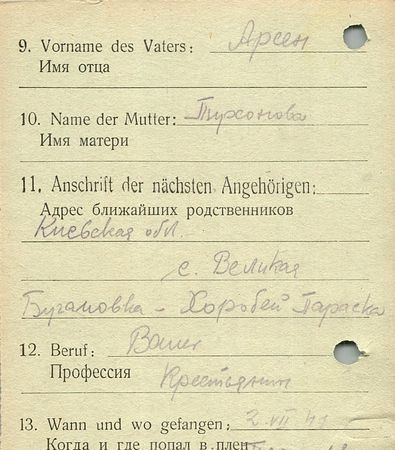 9. Vorname des Vaters: Арсен
Имя отца
10. Name der Mutter: Тихонова
Имя матери
11. Anschrift der nächsten Angehörigen:
Адрес ближайших родственников
Киевская обл.
с. Великая
Бугаловка - Хоробей Параска
12. Beruf: Bauer
Профессия Крестьянин
13. Wann und wo gefangen: 2.VII 41
Когда и где попал в плен